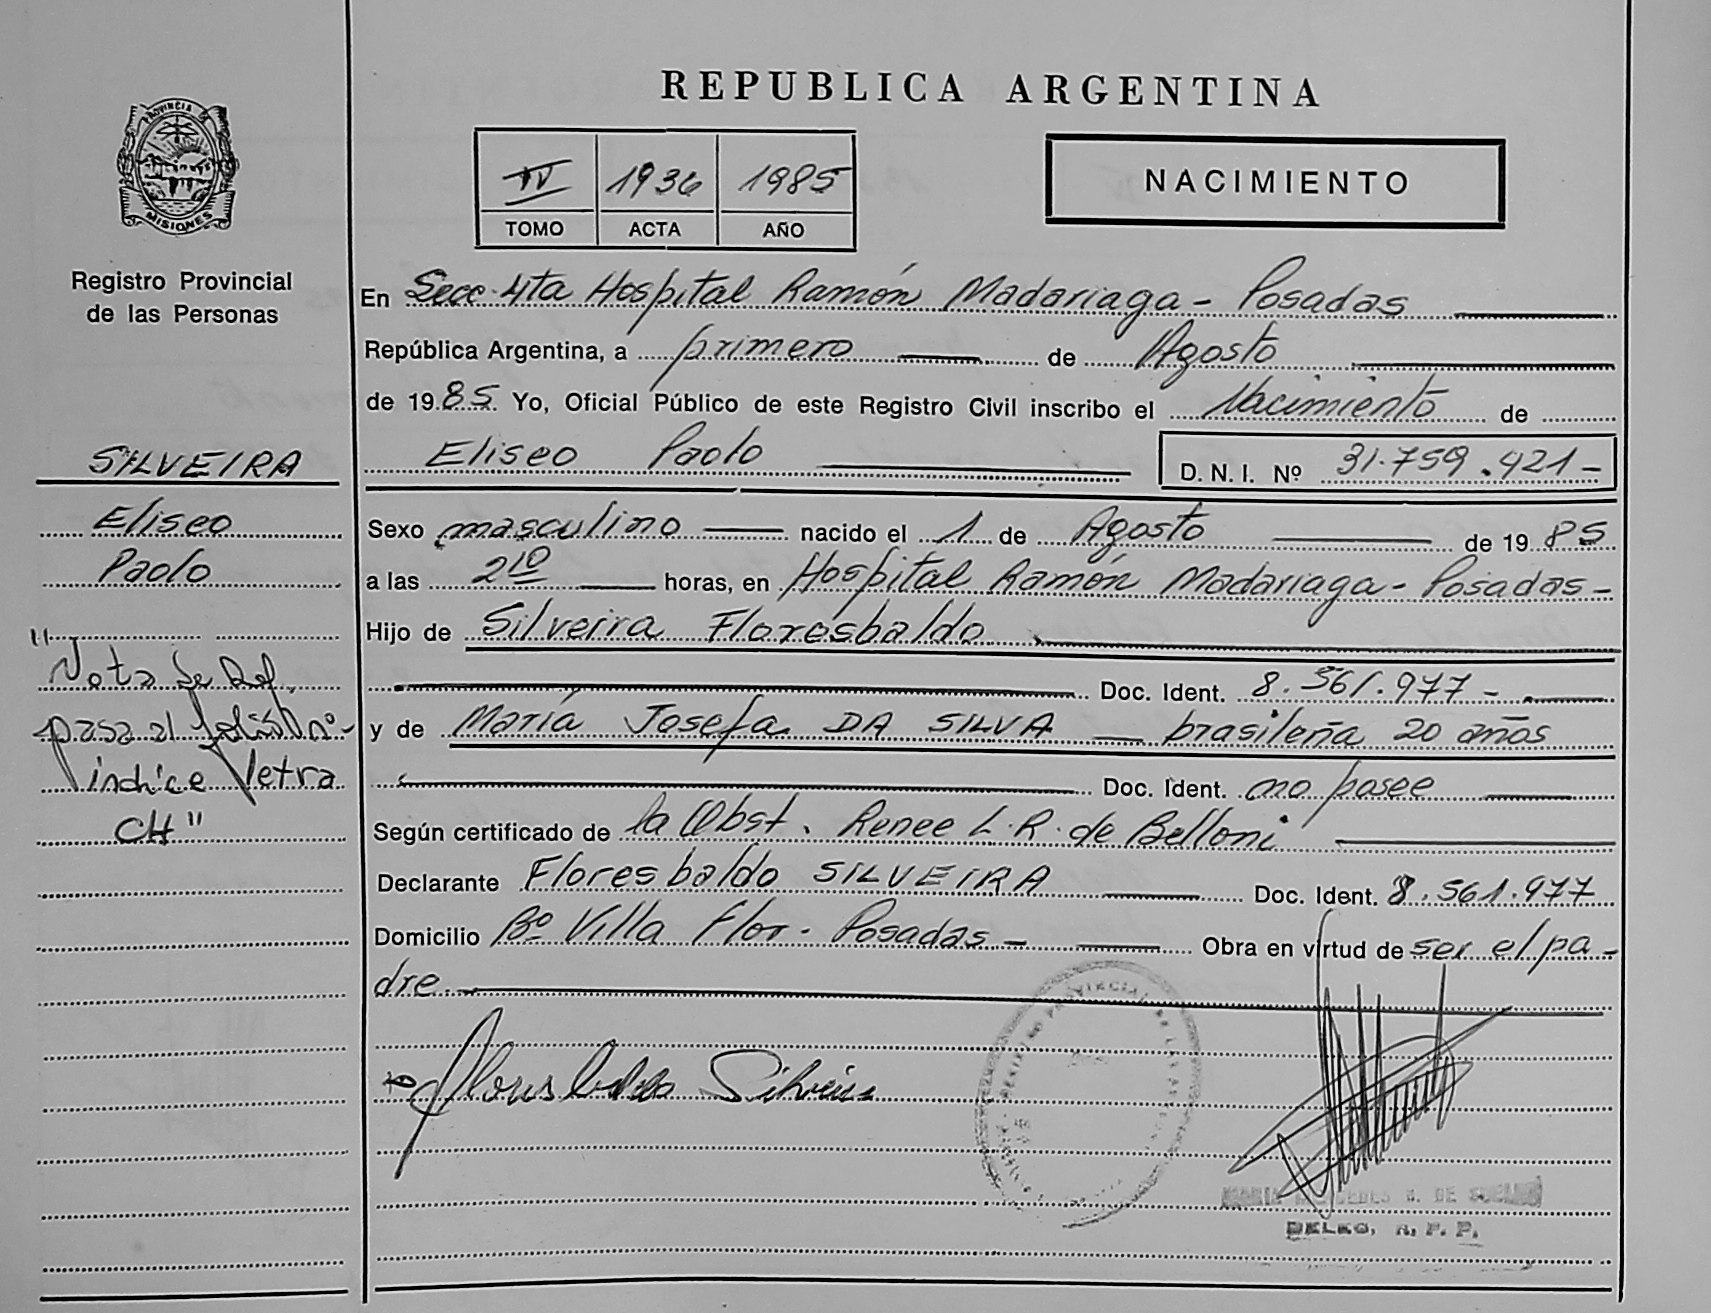 REPUBLICA ARGENTINA
PROVINCIA DE
MISIONES
Registro Provincial
de las Personas
IV 1936 1985
TOMO ACTA AÑO
NACIMIENTO
En Secc. 4ta Hospital Ramón Madariaga - Posadas
República Argentina, a primero de Agosto
de 1985. Yo, Oficial Público de este Registro Civil inscribo el Nacimiento de
Eliseo Paolo D. N. I. Nº 31.759.421-
Sexo masculino nacido el 1 de Agosto de 1985
a las 2 10 horas, en Hospital Ramón Madariaga - Posadas-
Hijo de Silveira Floresbaldo
Doc. Ident. 8.561.977-
y de María Josefa DA SILVA brasileña 20 años
Doc. Ident. no posee
Según certificado de la Obst. Renee L. R. de Belloni
Declarante Floresbaldo SILVEIRA Doc. Ident. 8.561.977
Domicilio Bº Villa Flor - Posadas - Obra en virtud de ser el pa-
dre
Floresbaldo Silveira
MARIA DE
DELEG. R. P. P.
SILVEIRA
Eliseo
Paolo
"Nota de Ref.
pasa al folio Nº-
indice letra
CH"